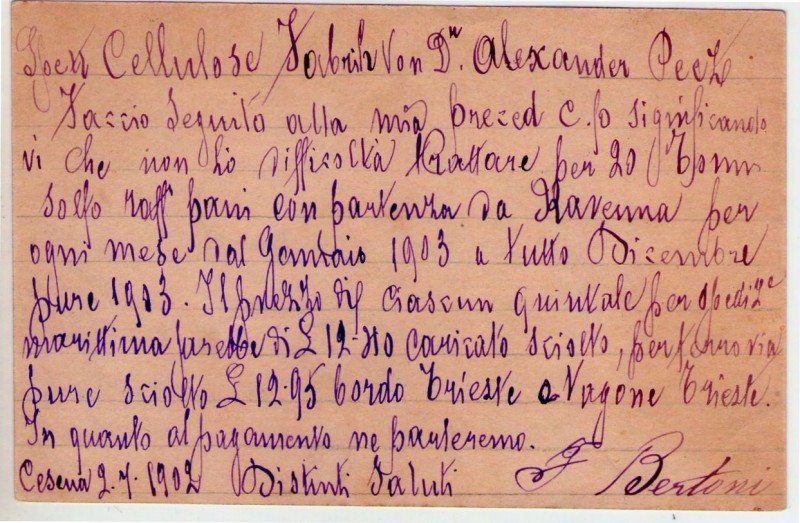 Spett Cellulose Fabrik Von Dr. Alexander Peez
Faccio seguito alla mia preced c.fo significando
vi che non ho difficoltà trattare per 20 Tonn
solfo raff pani con partenza da Ravenna per
ogni mese dal Gennaio 1903 a tutto Dicembre
pure 1903. Il prezzo di ciascun quintale per spediz.e
marittima sarebbe di £ 12-40 caricato sciolto, per ferrovia
pure sciolto £ 12.95 bordo Trieste o Vagone Trieste.
In quanto al pagamento ne parleremo.
Cesena 2.7.1902 Distinti Saluti F Bertoni